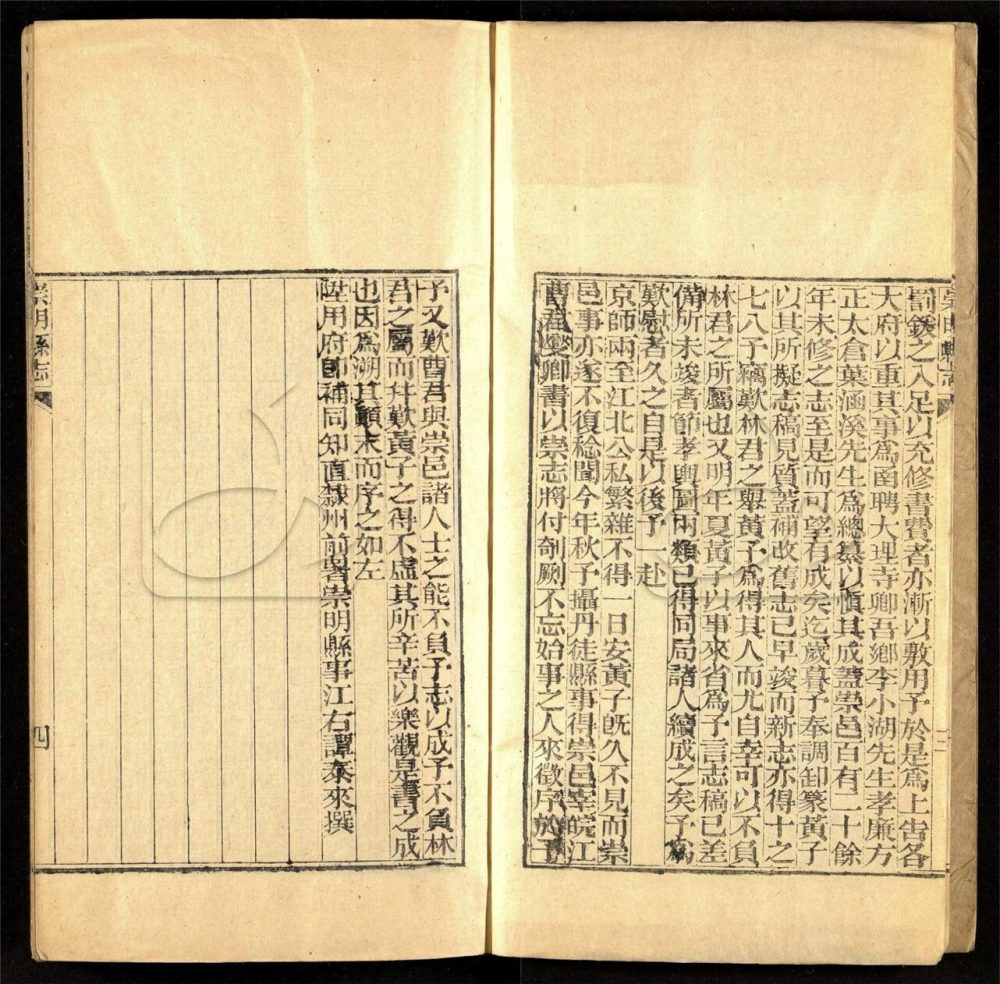 崇明縣志
三
罰鍰之入足以充修書費者亦漸以敷用予於是爲上告各
大府以重其事爲函聘大理寺卿吾鄉李小湖先生孝廉方
正太倉葉涵溪先生爲總纂以愼其成蓋崇邑百有二十餘
年未修之志至是而可望有成矣迄歲暮予奉調卸篆黃子
以其所擬志稿見質蓋補改舊志已早竣而新志亦得十之
七八予竊歎林君之舉黃子爲得其人而尤自幸可以不負
林君之所屬也又明年夏黃子以事來省爲予言志稿已差
備所未竣者節孝輿圖兩類已得同局諸人續成之矣予爲
歎慰者久之自是以後予一赴
京師兩至江北公私繁雜不得一日安黃子旣久不見而崇
邑事亦遂不復稔聞今年秋予攝丹徒縣事得崇邑宰皖江
曹君燮卿書以崇志將付剞劂不忘始事之人來徵序於予
予又歎曹君與崇邑諸人士之能不負予志以成予不負林
君之屬而幷歎黃子之得不虛其所辛苦以樂觀是書之成
也因爲溯其顚末而序之如左
陞用府卽補同知直隸州前署崇明縣事江右譚泰來撰
崇明縣志
四